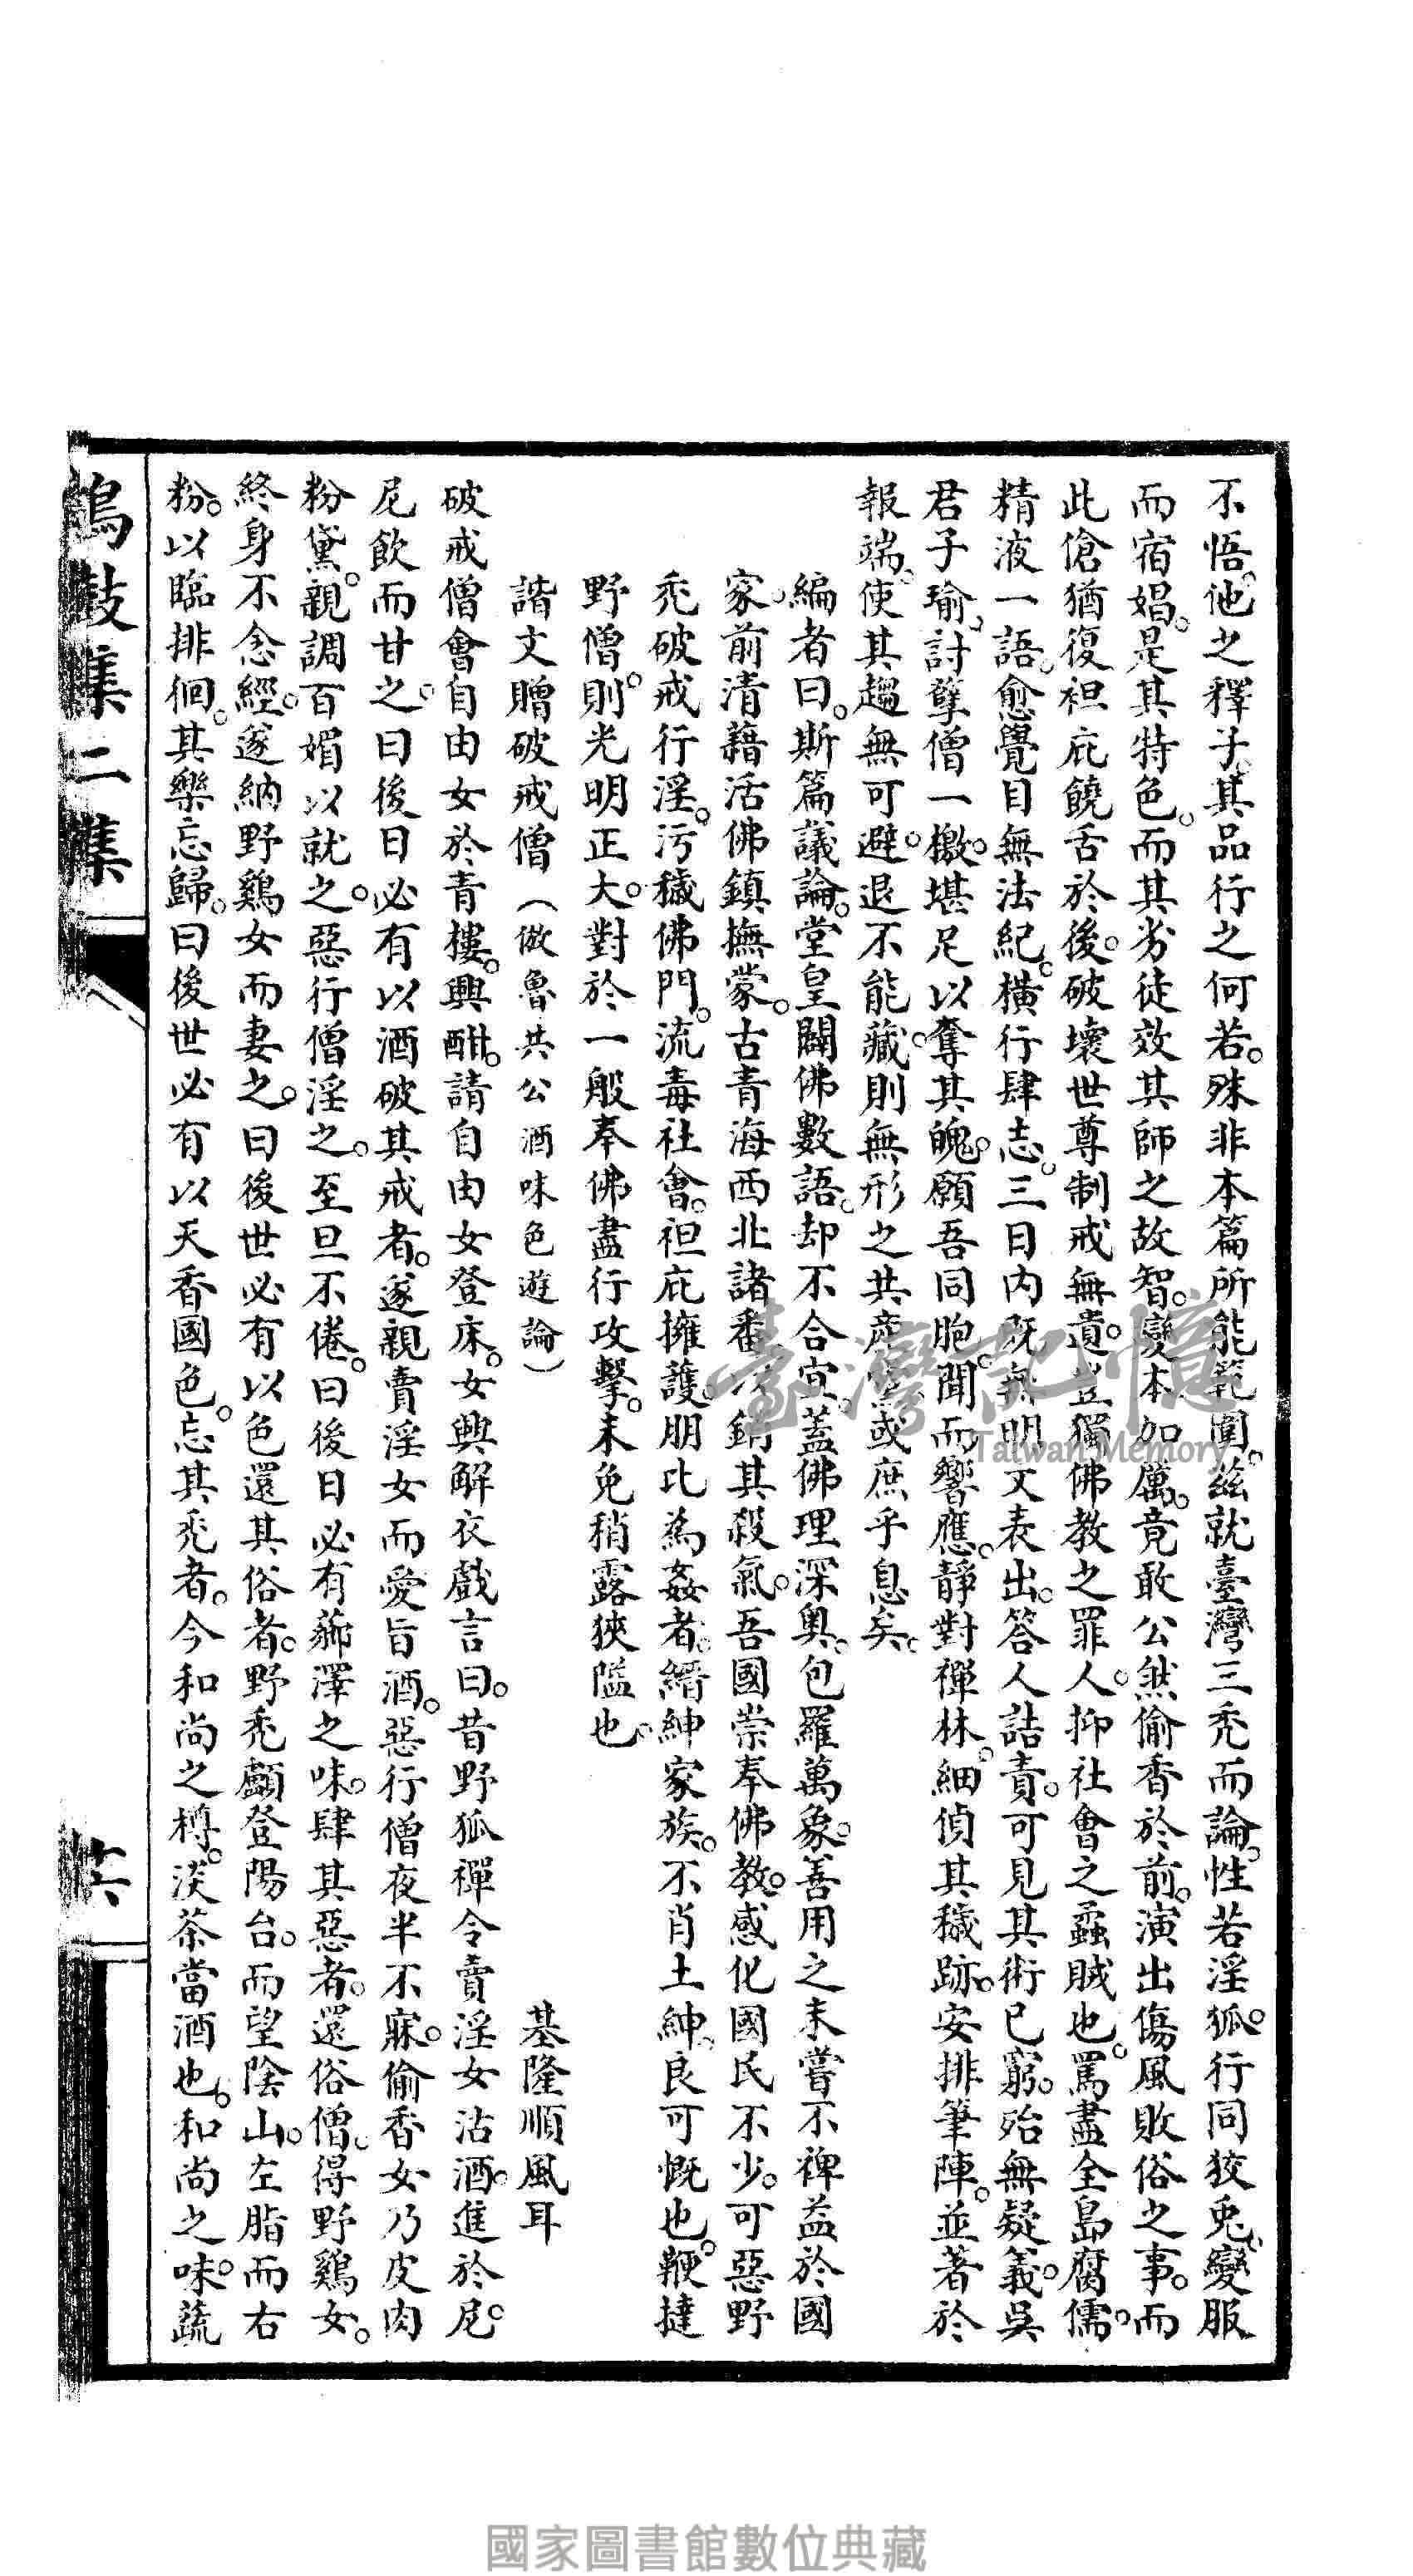 不悟。他之釋子。其品行之何若。殊非本篇所能範圍。玆就臺灣三禿而論。性若淫狐。行同狡兎。變服
而宿娼。是其特色。而其劣徒效其師之故智。變本加厲。竟敢公然偷香於前。演出傷風敗俗之事。而
此傖猶復袒庇饒舌於後。破壞世尊制戒無遺。豈獨佛教之罪人。抑社會之蟊賊也。罵盡全島腐儒。
精液一語。愈覺目無法紀。橫行肆志。三日內既無明文表出。答人詰責。可見其術已窮。殆無疑義。吳
君子瑜。討孽僧一檄。堪足以奪其魄。願吾同胞。聞而響應。靜對禪林。細偵其穢跡。安排筆陣。並著於
報端。使其趨無可避。退不能藏。則無形之共產黨或庶乎息矣。
編者曰。斯篇議論。堂皇闢佛數語。却不合宜。蓋佛理深奧。包羅萬象。善用之未嘗不裨益於國
家。前清藉活佛鎮撫蒙。古青海西北諸番。以銷其殺氣。吾國崇奉佛教。感化國民不少。可惡野
禿破戒行淫。污穢佛門。流毒社會。袒庇擁護。朋比為姦者。縉紳家族。不肖土紳。良可慨也。鞭撻
野僧。則光明正大。對於一般奉佛盡行攻擊。未免稍露狹隘也。
諧文贈破戒僧（倣魯共公酒味色遊論）
基隆順風耳
破戒僧會自由女於青樓。興酣。請自由女登床。女興解衣戲言曰。昔野狐禪令賣淫女沽酒。進於尼。
尼飲而甘之。曰後日必有以酒破其戒者。遂親賣淫女而愛旨酒。惡行僧夜半不寐。偷香女乃皮肉
粉黛。親調百媚以就之。惡行僧淫之。至旦不倦。曰後日必有薌澤之味。肆其惡者。還俗僧。得野鷄女。
終身不念經。遂納野鷄女而妻之。曰後世必有以色還其俗者。野禿顱登陽台。而望陰山。左脂而右
粉。以臨排徊。其樂忘歸。曰後世必有以天香國色。忘其禿者。今和尚之樽。淡茶當酒也。和尚之味。蔬
鳴鼓集二集
共
臺灣記憶
Taiwan Memory
國家圖書館數位典藏